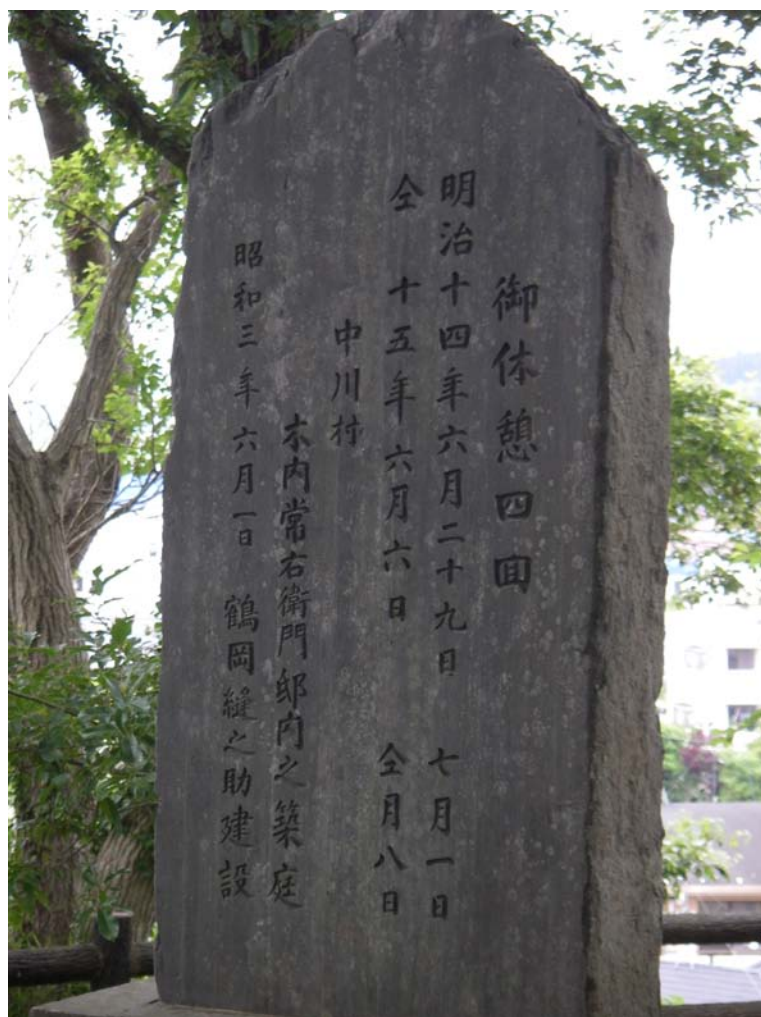 御休憩四囬
明治十四年六月二十九日 七月一日
仝 十五年六月六日 仝月八日
中川村
木内常右衛門邸内之築庭
昭和三年六月一日 鶴岡縫之助建設